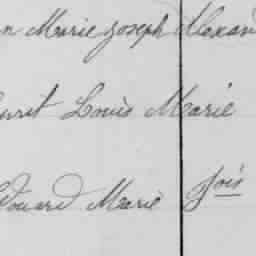 n Marie Joseph Alexan
Louis Marie
douard Marie